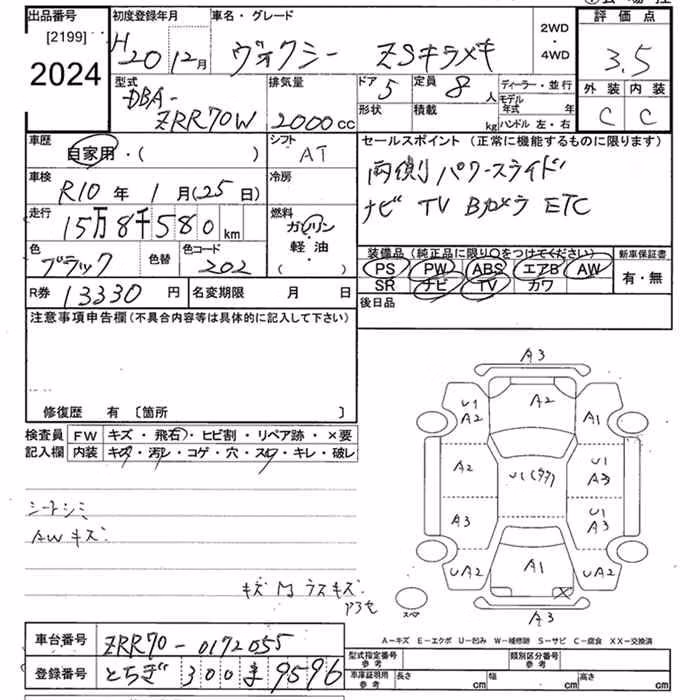 出品番号
[2199]
2024
初度登録年月
H 20 12月
車名・グレード
ヴォクシー ZSキラメキ
2WD
・
4WD
評価点
3.5
外装 内装
C C
型式
DBA-
ZRR70W
排気量
2000cc
ドア 5
定員 8人
形状
積載 kg
ディーラー・並行
モデル年式 年
ハンドル 左・右
車歴
自家用・( )
シフト
AT
セールスポイント (正常に機能するものに限ります)
両側パワースライド
ナビ TV Bカメラ ETC
車検
R10年 1月(25日)
冷房
走行
15万8千580km
燃料
ガソリン
・
軽油
( )
色
ブラック
色替
色コード
202
装備品 (純正品に限り○をつけてください)
PS PW ABS エアB AW
SR ナビ TV カワ
新車保証書
有・無
R券 13330円
名変期限 月 日
後日品
注意事項申告欄 (不具合内容等は具体的に記入して下さい)
修復歴 有 〔箇所 〕
検査員 FW キズ・飛石・ヒビ割・リペア跡・×要
記入欄 内装 キズ・汚レ・コゲ・穴・スレ・キレ・破レ
シートシミ
AWキズ
A3
U1
A2
A2
A1
A2
U1
U1
A3
A3
U1
A3
UA2
A1
UA2
X
A3
スペア
A−キズ E−エクボ U−凹み W−補修跡 S−サビ C−腐食 XX−交換済
車台番号 ZRR70-0172055
登録番号 とちぎ 300 ま 9596
型式指定番号
参考
類別区分番号
参考
車庫証明用
参考
長さ cm
幅 cm
高さ cm